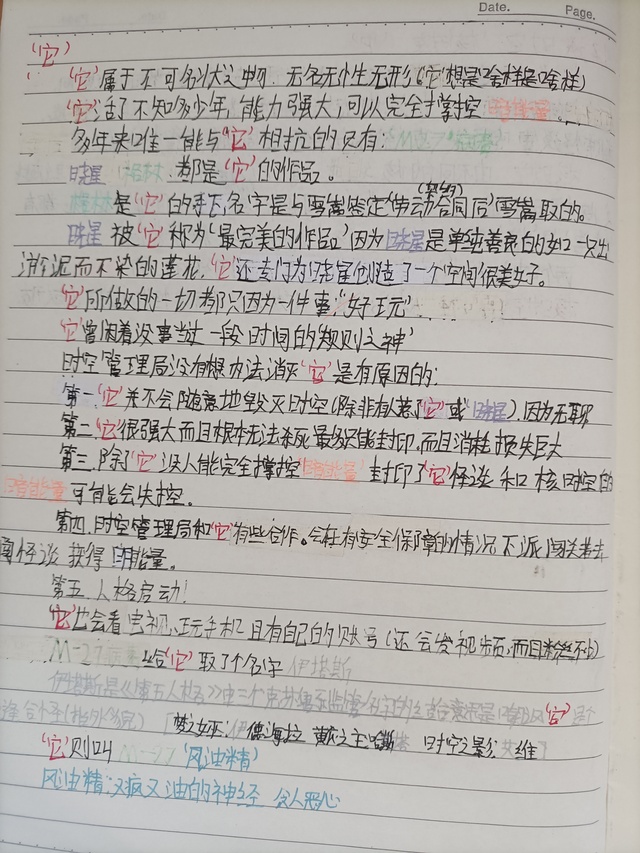 Date. Page.
“它”
“它”属于不可名状之物 无名无性无形（“它”想是啥样是啥样）
“它”活了不知多少年，能力强大，可以完全掌控暗能量
多年来唯一能与“它”相抗的只有：M-27
晓星 都是“它”的作品。
是“它”的手下名字是与雪嵩签定“劳动合同后”雪嵩取的。
晓星被“它”称为“最完美的作品”因为晓星是单纯善良的如一只出
淤泥而不染的莲花，“它”还专门为晓星创造了一个空间很美好。
“它”所做的一切都只因为一件事：“好玩”
“它”曾闲着没事当过一段时间的“规则之神”
时空管理局没有想办法消灭“它”是有原因的：
第一“它”并不会随意地毁灭时空（除非有人惹了“它”或晓星），因为无聊
第二“它”很强大而且根本无法杀死最多只能封印，而且消耗损失巨大
第三，除了“它”没人能完全掌控“暗能量”封印了“它”怪谈和核时空的
暗能量可能会失控。
第四，时空管理局和“它”有些合作。会在有安全保障的情况下派闯关者去
闯怪谈获得暗能量。
第五，人格启动！
“它”也会看电视、玩手机且有自己的账号（还会发视频，而且粉丝不少）
M-27 给“它”取了个名字 伊塔斯
伊塔斯是《第五人格》中三个
「梦之女巫：伊德海拉 黄衣之主哈斯塔 时空之影：
“它”则叫M-27“风油精”
风油精：又疯又油的神经 令人恶心